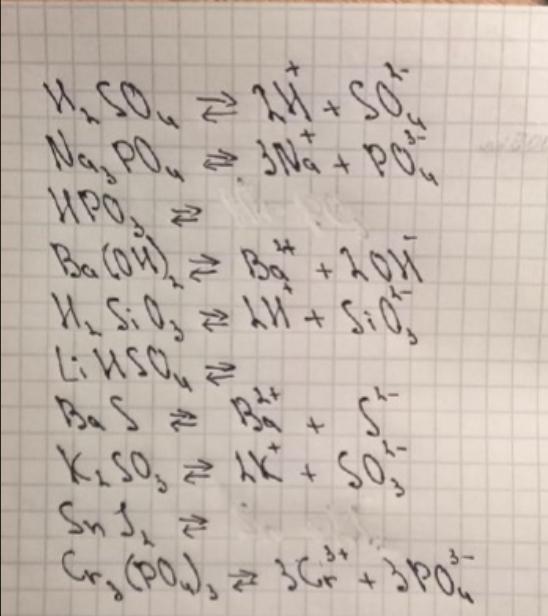 H₂SO₄ ⇄ 2H⁺ + SO₄²⁻
Na₃PO₄ ⇄ 3Na⁺ + PO₄³⁻
HPO₃ ⇄
Ba(OH)₂ ⇄ Ba²⁺ + 2OH⁻
H₂SiO₃ ⇄ 2H⁺ + SiO₃²⁻
LiHSO₄ ⇄
BaS ⇄ Ba²⁺ + S²⁻
K₂SO₃ ⇄ 2K⁺ + SO₃²⁻
SnI₂ ⇄
Cr₃(PO₄)₃ ⇄ 3Cr³⁺ + 3PO₄³⁻